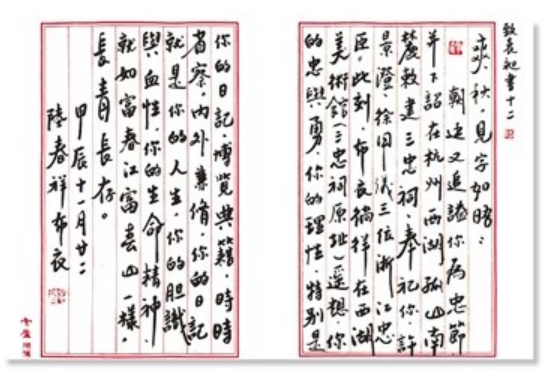 致袁昶書十二
爽秋,見字如晤:
朝廷又追謚你為忠節,
并下詔在杭州西湖孤山南
麓敕建三忠祠,奉祀你、許
景澄、徐用儀三位浙江忠
臣。此刻,布衣徜徉在西湖
美術館(三忠祠原址)遥想,你
的忠與勇,你的理性,特别是
你的日記,博覽典籍,時時
省察,内外兼修,你的日記
就是你的人生,你的胆識
與血性,你的生命精神,
就如富春江富春山一樣,
長青長存。
甲辰十一月廿二
陸春祥布衣